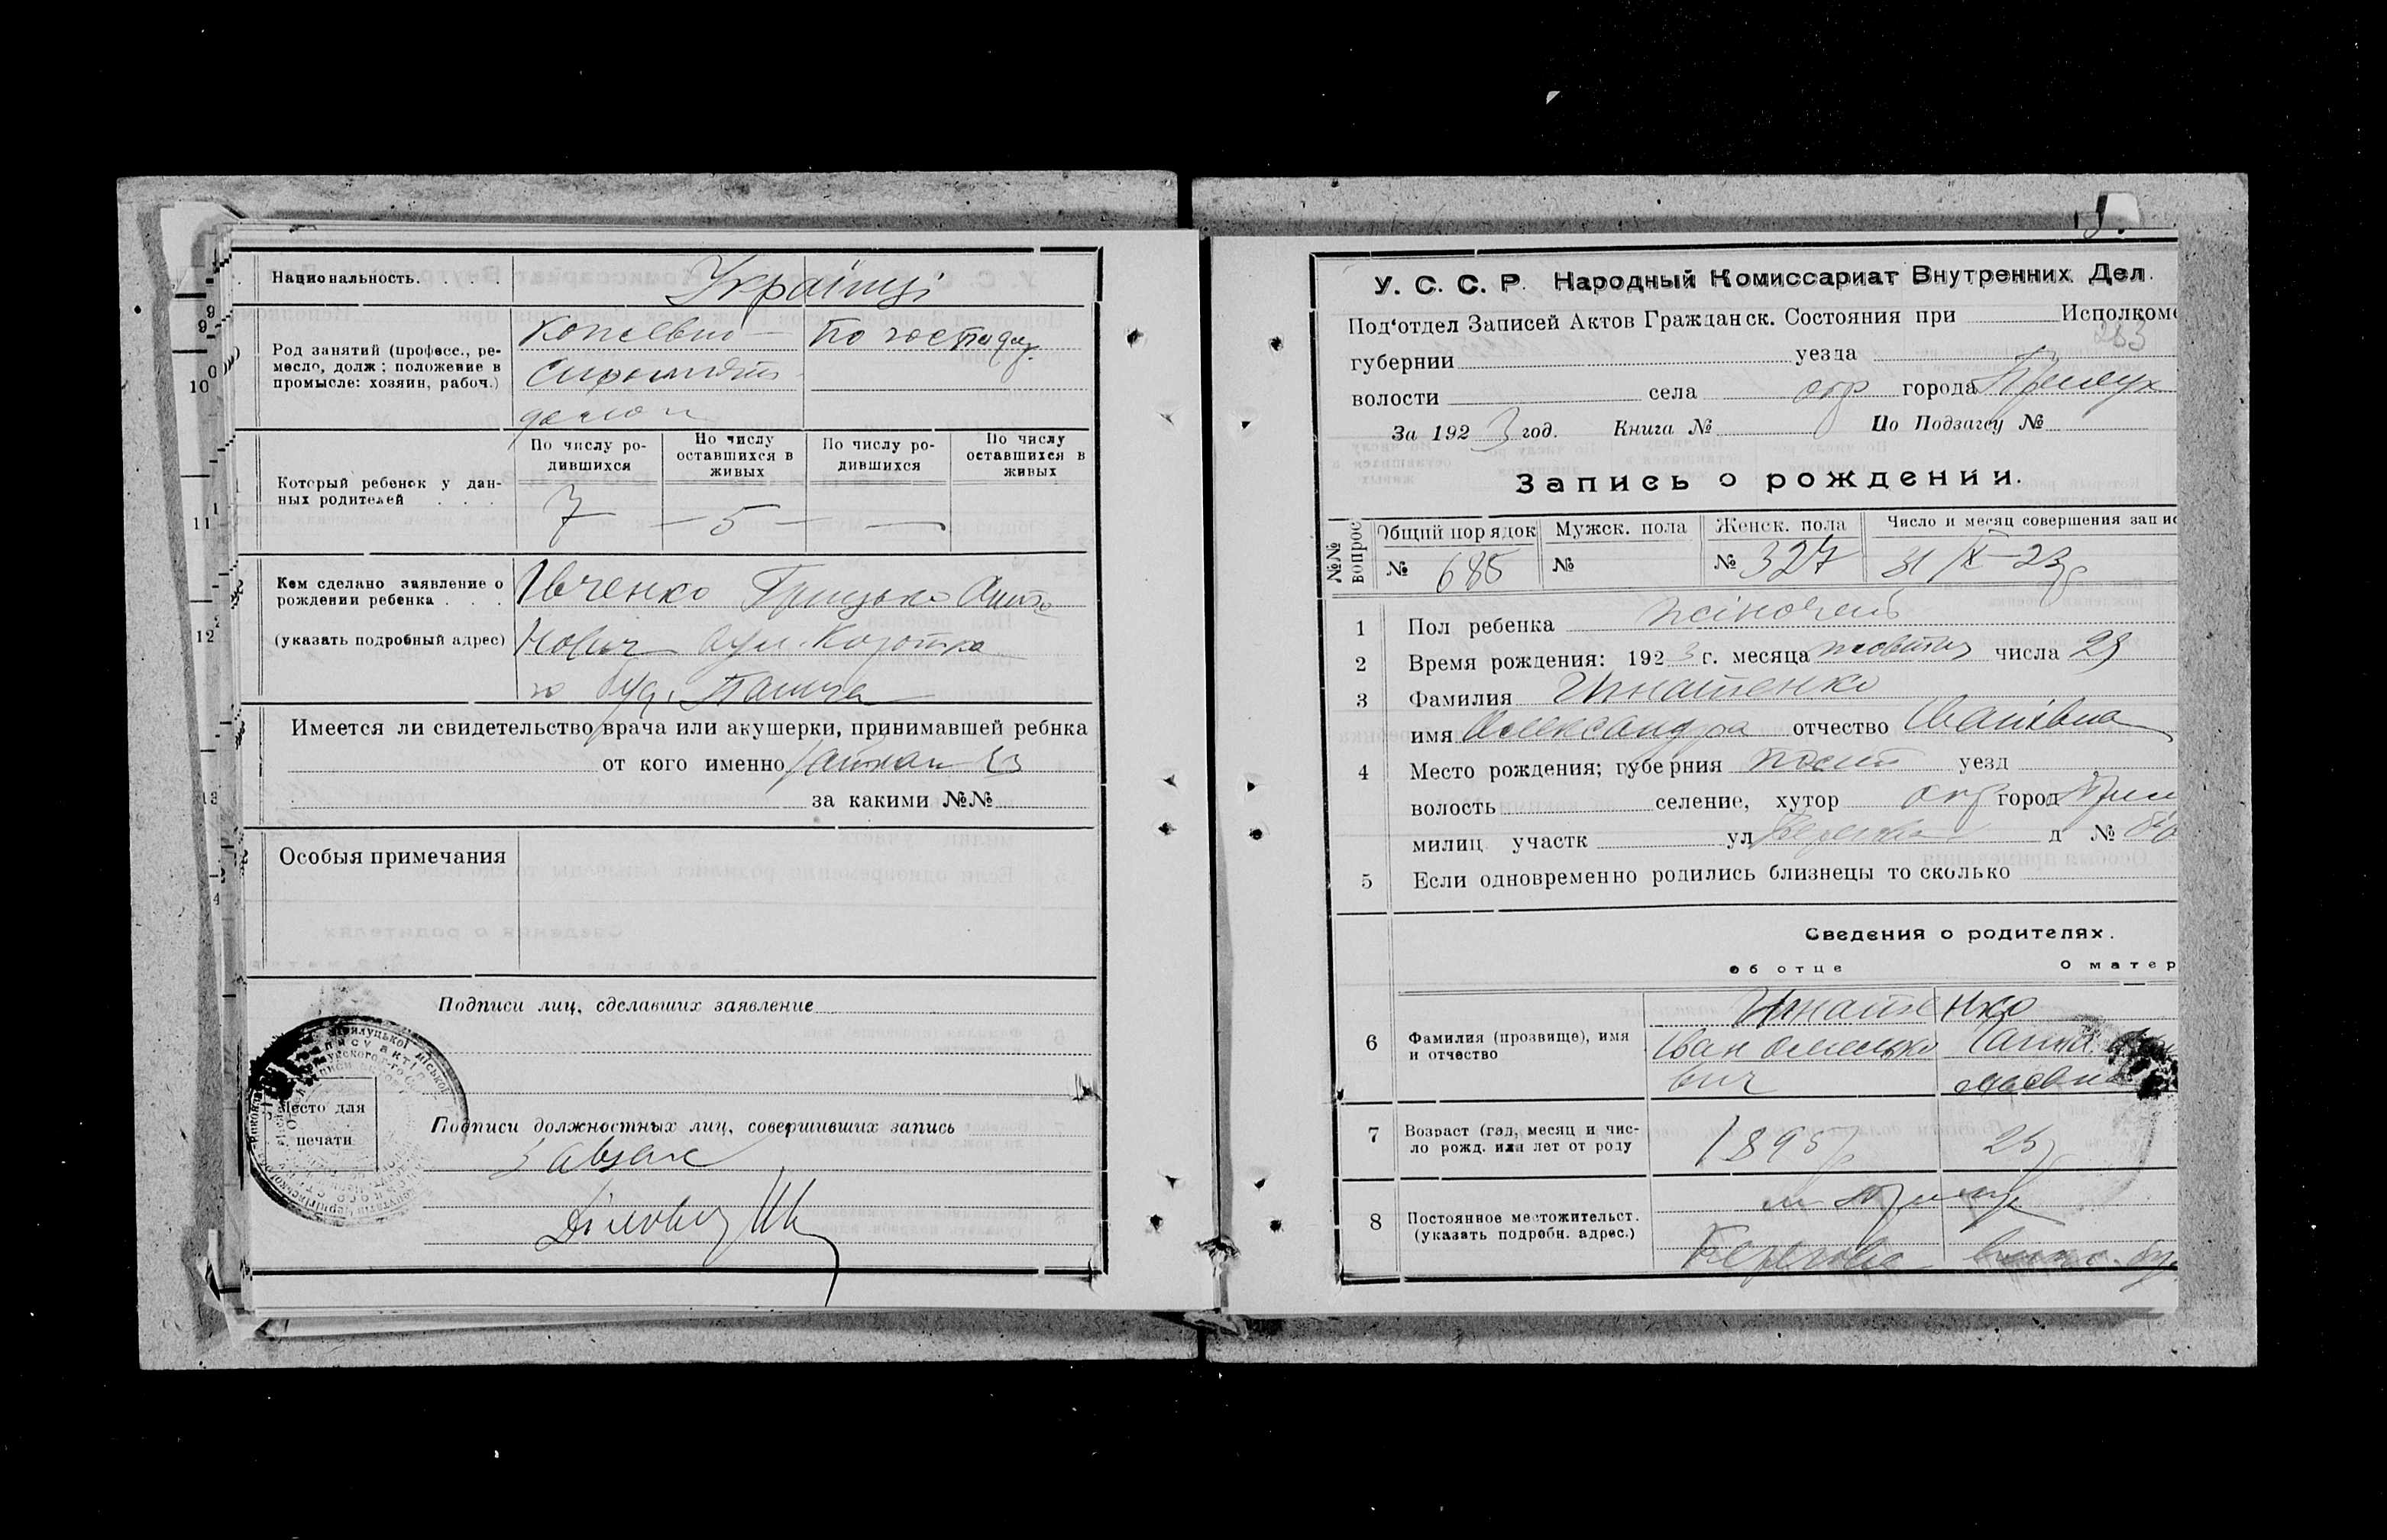 Национальность. . . .
Українці
Род занятий (професс., ре-
месло, долж; положение в
промысле: хозяин, рабоч.)
По господ.
Который ребенок у дан-
ных родителей . . .
По числу ро-
дившихся
По числу
оставшихся в
живых
По числу ро-
дившихся
По числу
оставшихся в
живых
7 — 5 — —
Кем сделано заявление о
рождении ребенка . . .
(указать подробный адрес)
Івченко Грицько
Имеется ли свидетельство врача или акушерки, принимавшей ребнка
от кого именно
за какими №№
Особыя примечания
Подписи лиц, сделавших заявление
Место для
печати
Подписи должностных лиц, совершивших запись
Завзагс
У. С. С. Р. Народный Комиссариат Внутренних Дел.
283
Под‘отдел Записей Актов Гражданск. Состояния при Исполком
губернии уезда
волости села окр города Прилук
За 1923 год. Книга № По Подзагсу №
Запись о рождении.
№№ вопрос
Общий порядок Мужск. пола Женск. пола Число и месяц совершения запис
№ 685 № № 327 31/X–23р
1 Пол ребенка жіночень
2 Время рождения: 1923 г. месяца жовтня числа 23
3 Фамилия Ігнатенко
имя Олександра отчество Іванівна
4 Место рождения; губерния уезд
волость селение, хутор окр город Прил
милиц участк ул Берегова д №
5 Если одновременно родились близнецы то сколько
Сведения о родителях.
об отце О матер
6 Фамилия (прозвище), имя
и отчество
Ігнатенко
Іван Омелько
вич
7 Возраст (гад, месяц и чис-
ло рожд. или лет от роду
1895р 25р
8 Постоянное местожительст.
(указать подробн. адрес.)
м Прилук
Берегова